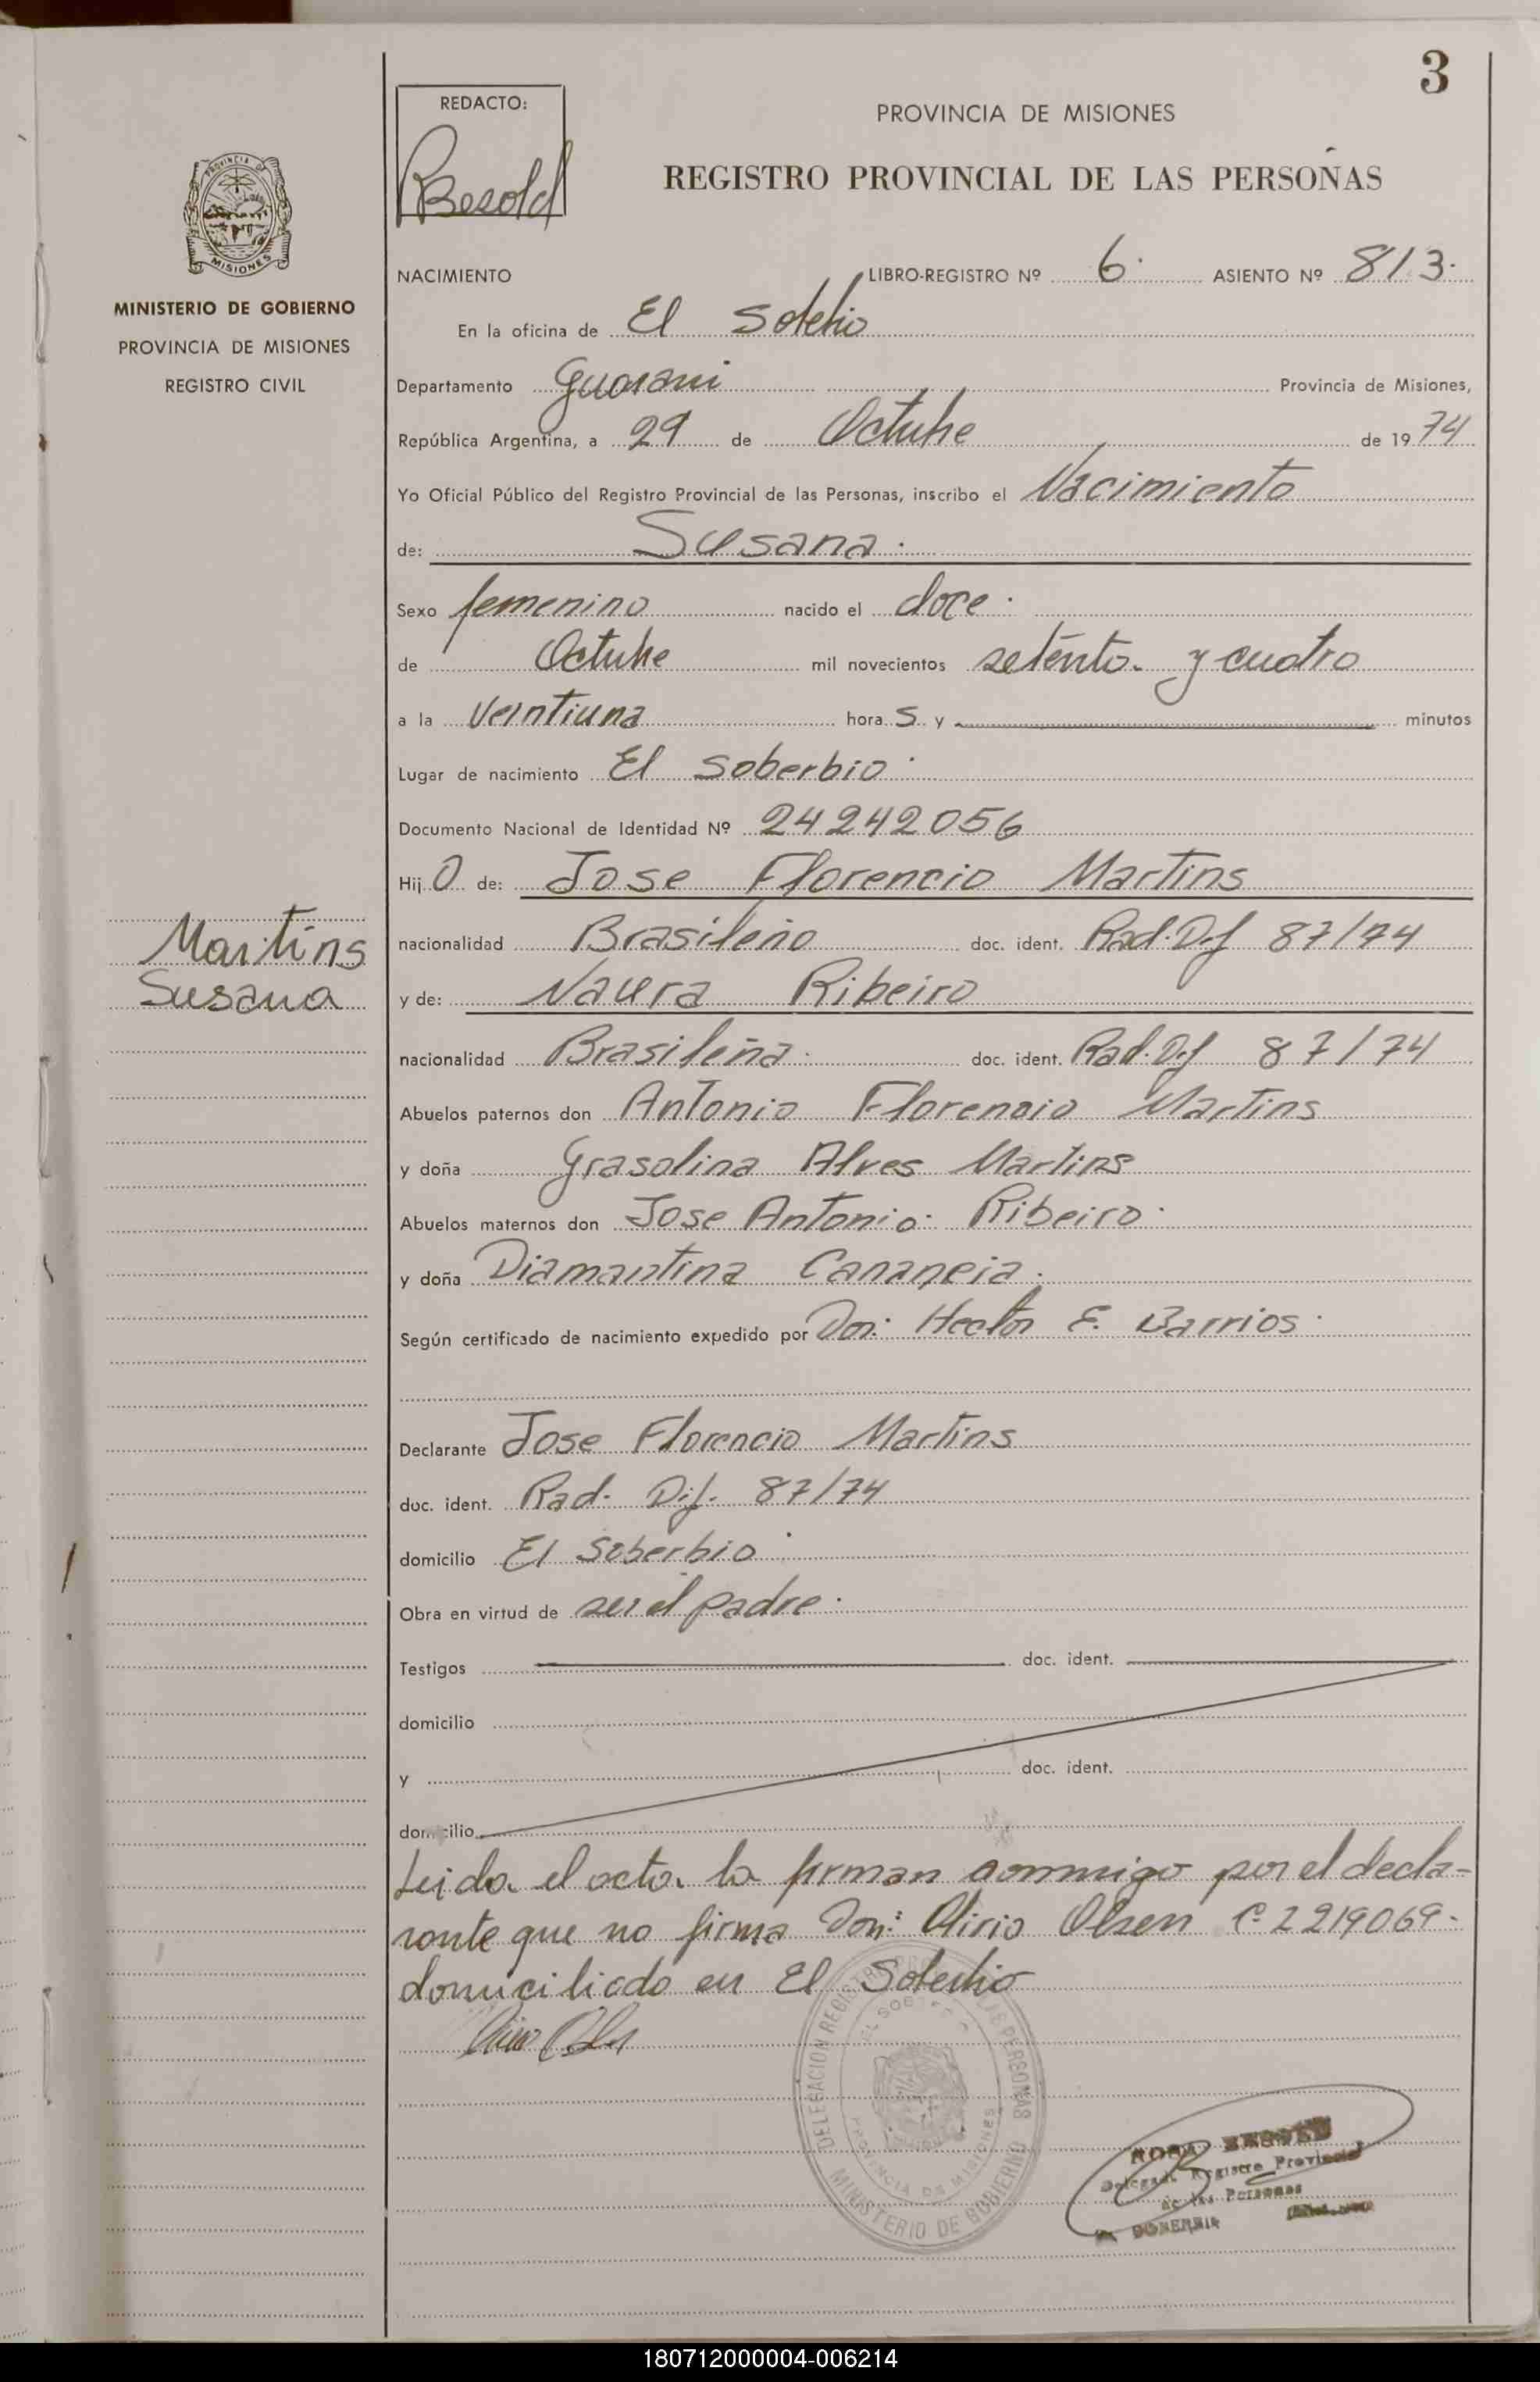 3
REDACTO:
Besold
PROVINCIA DE MISIONES
REGISTRO PROVINCIAL DE LAS PERSONAS
PROVINCIA DE
MISIONES
MINISTERIO DE GOBIERNO
PROVINCIA DE MISIONES
REGISTRO CIVIL
NACIMIENTO LIBRO-REGISTRO Nº 6 ASIENTO Nº 813
En la oficina de El Soberbio
Departamento Guarani Provincia de Misiones,
República Argentina, a 29 de Octubre de 1974
Yo Oficial Público del Registro Provincial de las Personas, inscribo el Nacimiento
de: Susana
Sexo femenino nacido el doce
de Octubre mil novecientos setenta y cuatro
a la veintiuna hora s y minutos
Lugar de nacimiento El Soberbio
Documento Nacional de Identidad Nº 24242056
Hij a de: Jose Florencio Martins
nacionalidad Brasileño doc. ident. Rad. Dif 87/74
Martins
Susana
y de: Naura Ribeiro
nacionalidad Brasileña doc. ident. Rad. Dif 87/74
Abuelos paternos don Antonio Florencio Martins
y doña Grasolina Alves Martins
Abuelos maternos don Jose Antonio Ribeiro
y doña Diamantina Cananeia
Según certificado de nacimiento expedido por Don: Hector E. Barrios
Declarante Jose Florencio Martins
doc. ident. Rad. Dif. 87/74
domicilio El Soberbio
Obra en virtud de ser el padre
Testigos doc. ident.
domicilio
y doc. ident.
domicilio
Leida el acta la firman conmigo por el decla-
rante que no firma Don: Alirio Olsen C. 2219069-
domiciliado en El Soberbio
DELEGACION REGISTRO DE LAS PERSONAS
EL SOBERBIO
PROVINCIA DE MISIONES
MINISTERIO DE GOBIERNO
Registro Provincial
de las Personas
SOBERBIO
180712000004-006214